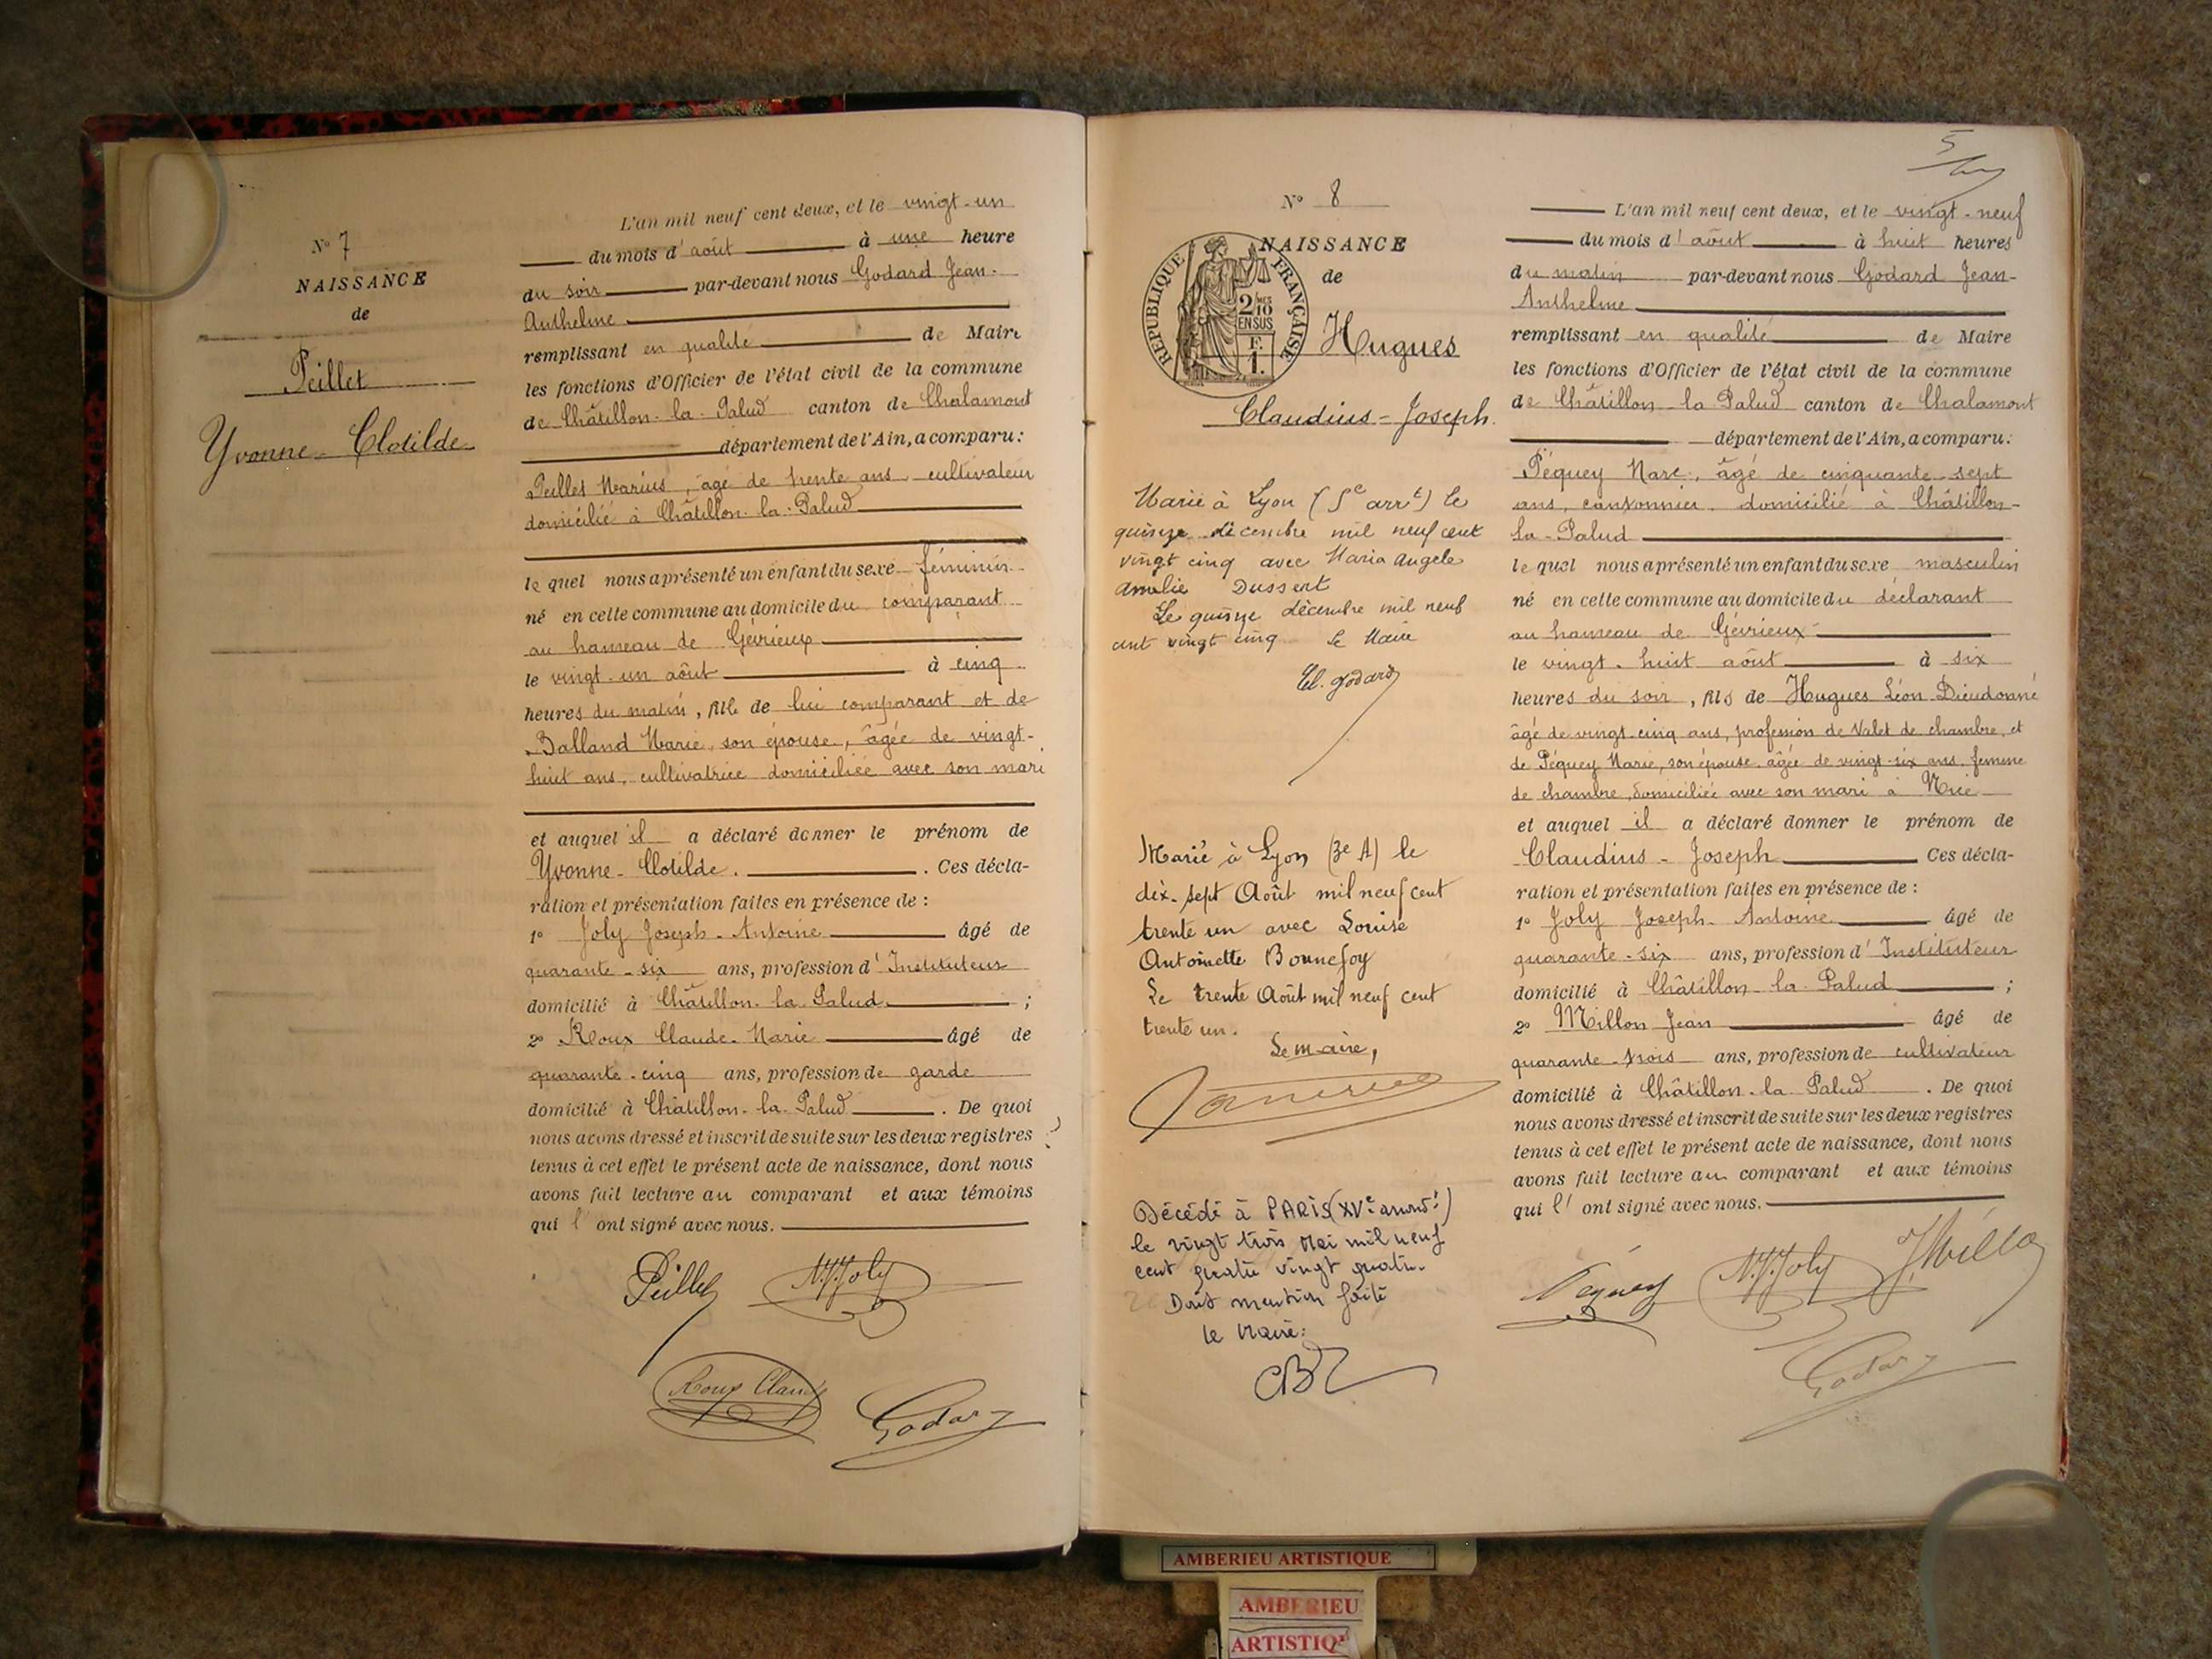 N° 7
NAISSANCE
de
Peillet
Yvonne-Clotilde
L'an mil neuf cent deux, et le vingt-un
du mois d'août à une heure
du soir par-devant nous Godard Jean-
Anthelme
remplissant en qualité de Maire
les fonctions d'Officier de l'état civil de la commune
de Châtillon-la-Palud canton de Chalamont
département de l'Ain, a comparu:
Peillet Marius, âgé de trente ans, cultivateur
domicilié à Châtillon-la-Palud
lequel nous a présenté un enfant du sexe féminin
né en cette commune au domicile du comparant
au hameau de Gévrieux
le vingt-un août à cinq
heures du matin, fille de lui comparant et de
Balland Marie, son épouse, âgée de vingt-
huit ans, cultivatrice domiciliée avec son mari
et auquel il a déclaré donner le prénom de
Yvonne-Clotilde. Ces décla-
ration et présentation faites en présence de :
1° Joly Joseph-Antoine âgé de
quarante-six ans, profession d'Instituteur
domicilié à Châtillon-la-Palud ;
2° Roux Claude-Marie âgé de
quarante-cinq ans, profession de garde
domicilié à Châtillon-la-Palud. De quoi
nous avons dressé et inscrit de suite sur les deux registres
tenus à cet effet le présent acte de naissance, dont nous
avons fait lecture au comparant et aux témoins
qui l'ont signé avec nous.
Peillet Joly
Roux Claude Godard
5
N° 8
NAISSANCE
de
RÉPUBLIQUE FRANÇAISE
2/10 MES
EN SUS
F.
1.
Hugues
Claudius-Joseph
Marié à Lyon (5e arrt) le
quinze décembre mil neuf cent
vingt cinq avec Maria Angèle
Amélie Dussert
Le quinze décembre mil neuf
cent vingt cinq Le Maire
El. Godard
Marié à Lyon (3e A) le
dix-sept Août mil neuf cent
trente un avec Louise
Antoinette Bonnefoy
Le trente Août mil neuf cent
trente un.
Le maire,
Décédé à PARIS (XVe arrondt)
le vingt trois Mai mil neuf
cent quatre vingt quatre.
Dont mention faite
le Maire:
L'an mil neuf cent deux, et le vingt-neuf
du mois d'août à huit heures
du matin par-devant nous Godard Jean-
Anthelme
remplissant en qualité de Maire
les fonctions d'Officier de l'état civil de la commune
de Châtillon-la-Palud canton de Chalamont
département de l'Ain, a comparu:
Péquey Marc, âgé de cinquante-sept
ans, cantonnier, domicilié à Châtillon-
la-Palud
lequel nous a présenté un enfant du sexe masculin
né en cette commune au domicile du déclarant
au hameau de Gévrieux
le vingt-huit août à six
heures du soir, fils de Hugues Léon-Dieudonné
âgé de vingt-cinq ans, profession de Valet de chambre, et
de Péquey Marie, son épouse, âgée de vingt-six ans, femme
de chambre, domiciliée avec son mari à Nice
et auquel il a déclaré donner le prénom de
Claudius-Joseph Ces décla-
ration et présentation faites en présence de :
1° Joly Joseph-Antoine âgé de
quarante-six ans, profession d'Instituteur
domicilié à Châtillon-la-Palud ;
2° Millon Jean âgé de
quarante-trois ans, profession de cultivateur
domicilié à Châtillon-la-Palud. De quoi
nous avons dressé et inscrit de suite sur les deux registres
tenus à cet effet le présent acte de naissance, dont nous
avons fait lecture au comparant et aux témoins
qui l'ont signé avec nous.
Péquey Joly J Millon
Godard
AMBERIEU ARTISTIQUE
AMBERIEU
ARTISTIQ